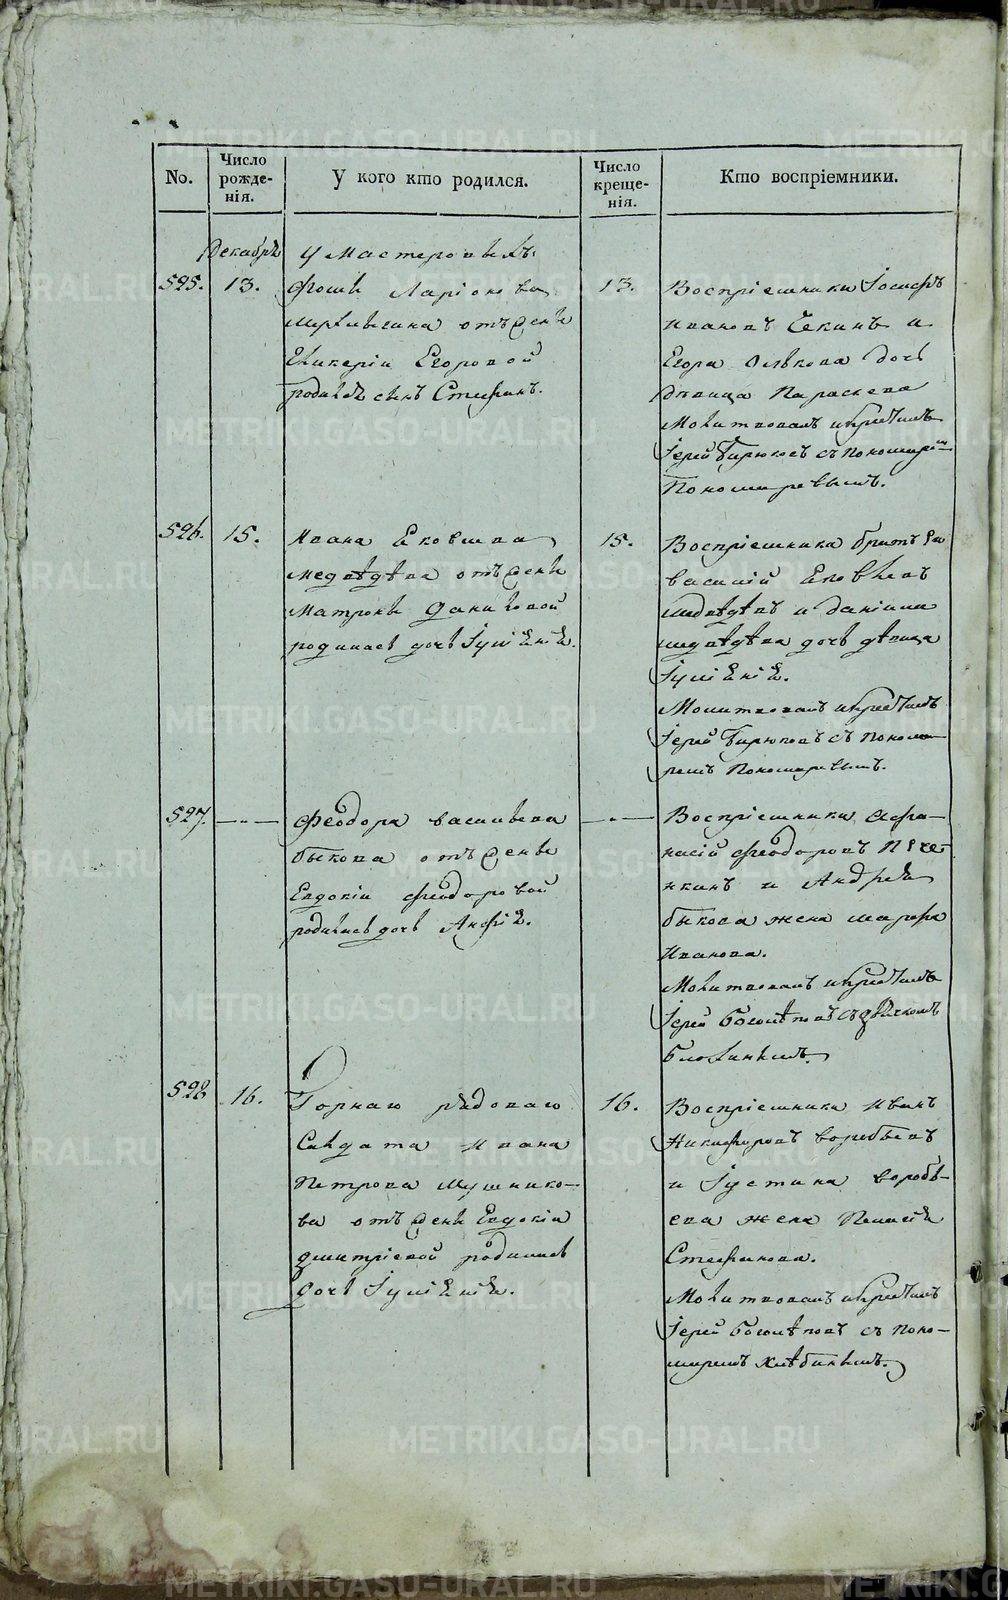 No.
Число рожде- нія.
У кого кто родился.
Число креще- нія.
Кто воспріемники.
Декабрь
У Мастеровыхъ.
525. 13.
Фомы Ларіонова
отъ жены
Гликеріи Егоровой
родился сынъ Стефанъ.
13.
Воспріемники Іосифъ
Ивановъ Чекинъ и
Егора Олькова дочь
дѣвица Параскева
Молитвовалъ и крестилъ
Іерей Бирюковъ съ пономаремъ
Пономаревымъ.
526. 15.
Ивана Яковлева
Медвѣдева отъ жены
Матроны Даниловой
родилась дочь Іуліанія.
15.
Воспріемники братъ ея
Василій Яковлевъ
Медвѣдевъ и Даніила
Медвѣдева дочь дѣвица
Іуліанія.
Молитвовалъ и крестилъ
Іерей Бирюковъ съ понома-
ремъ Пономаревымъ.
527. — " —
Феодора Васильева
Быкова отъ жены
Евдокіи Феодоровой
родилась дочь Анфія.
— " —
Воспріемники Афа-
насій Феодоровъ Пече-
нкинъ и Андрея
Быкова жена Марфа
Иванова.
Молитвовалъ и крестилъ
Іерей Боголѣповъ съ дьячкомъ
528 16.
Горнаго рядоваго
Салдата Ивана
Петрова Мушнико-
ва отъ жены Евдокіи
Дмитріевой родилась
дочь Іуліанія.
16.
Воспріемники Иванъ
Никифоровъ Воробьевъ
и Іустина Воробь-
ева жена Пелагея
Стефанова.
Молитвовалъ и крестилъ
Іерей Боголѣповъ съ поно-
маремъ Хлѣбинымъ.
METRIKI.GASO-URAL.RU